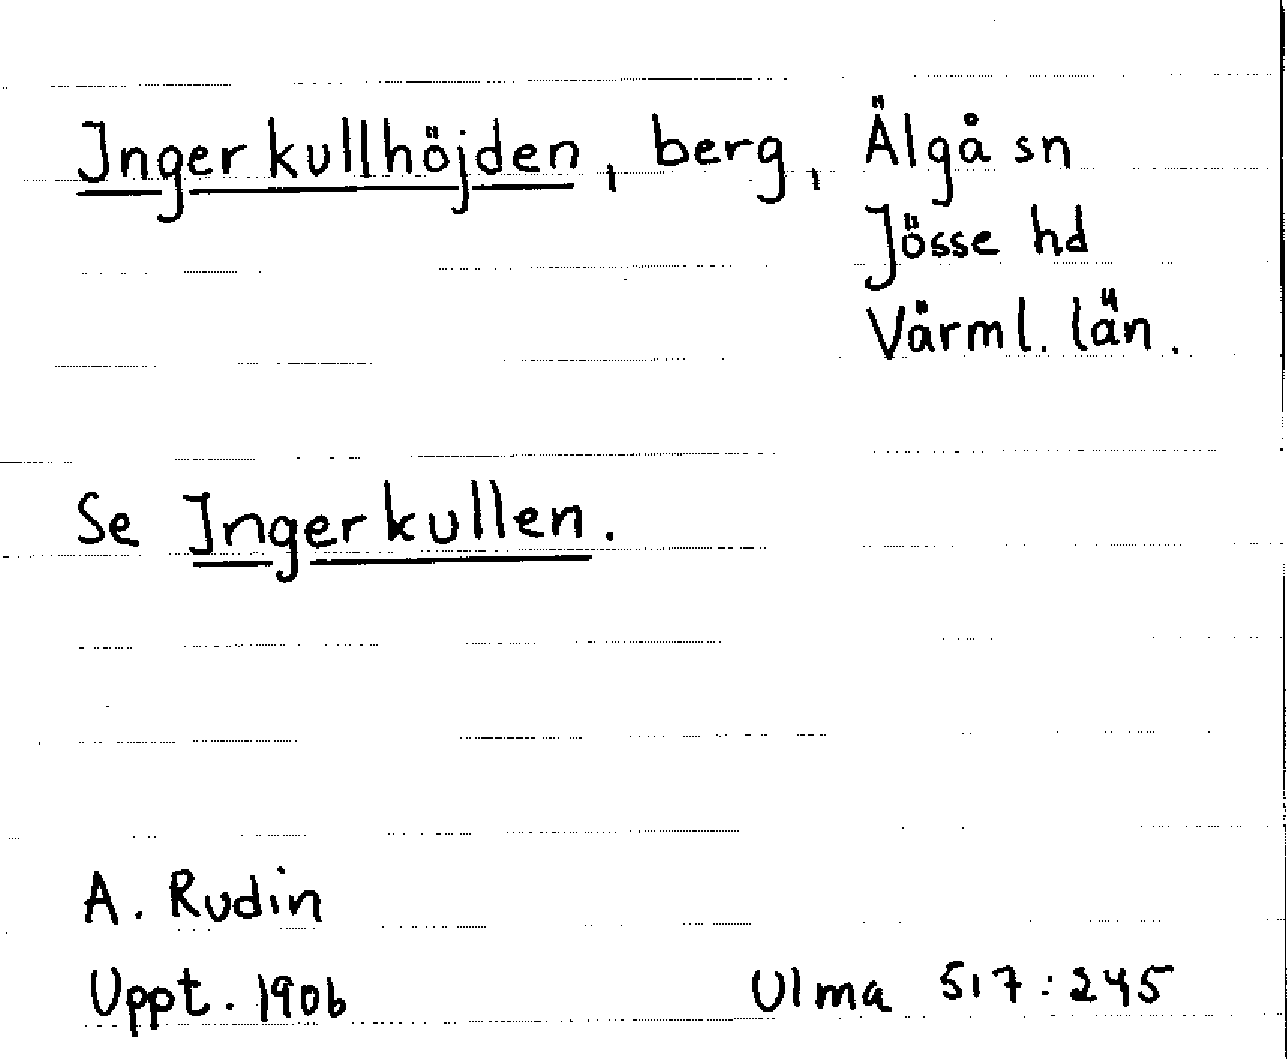 Ingerkullhöjden, berg, Älgå sn
Jösse hd
Värml. län.
Se Ingerkullen.
A. Rudin
Uppt. 1906
Ulma 517:245